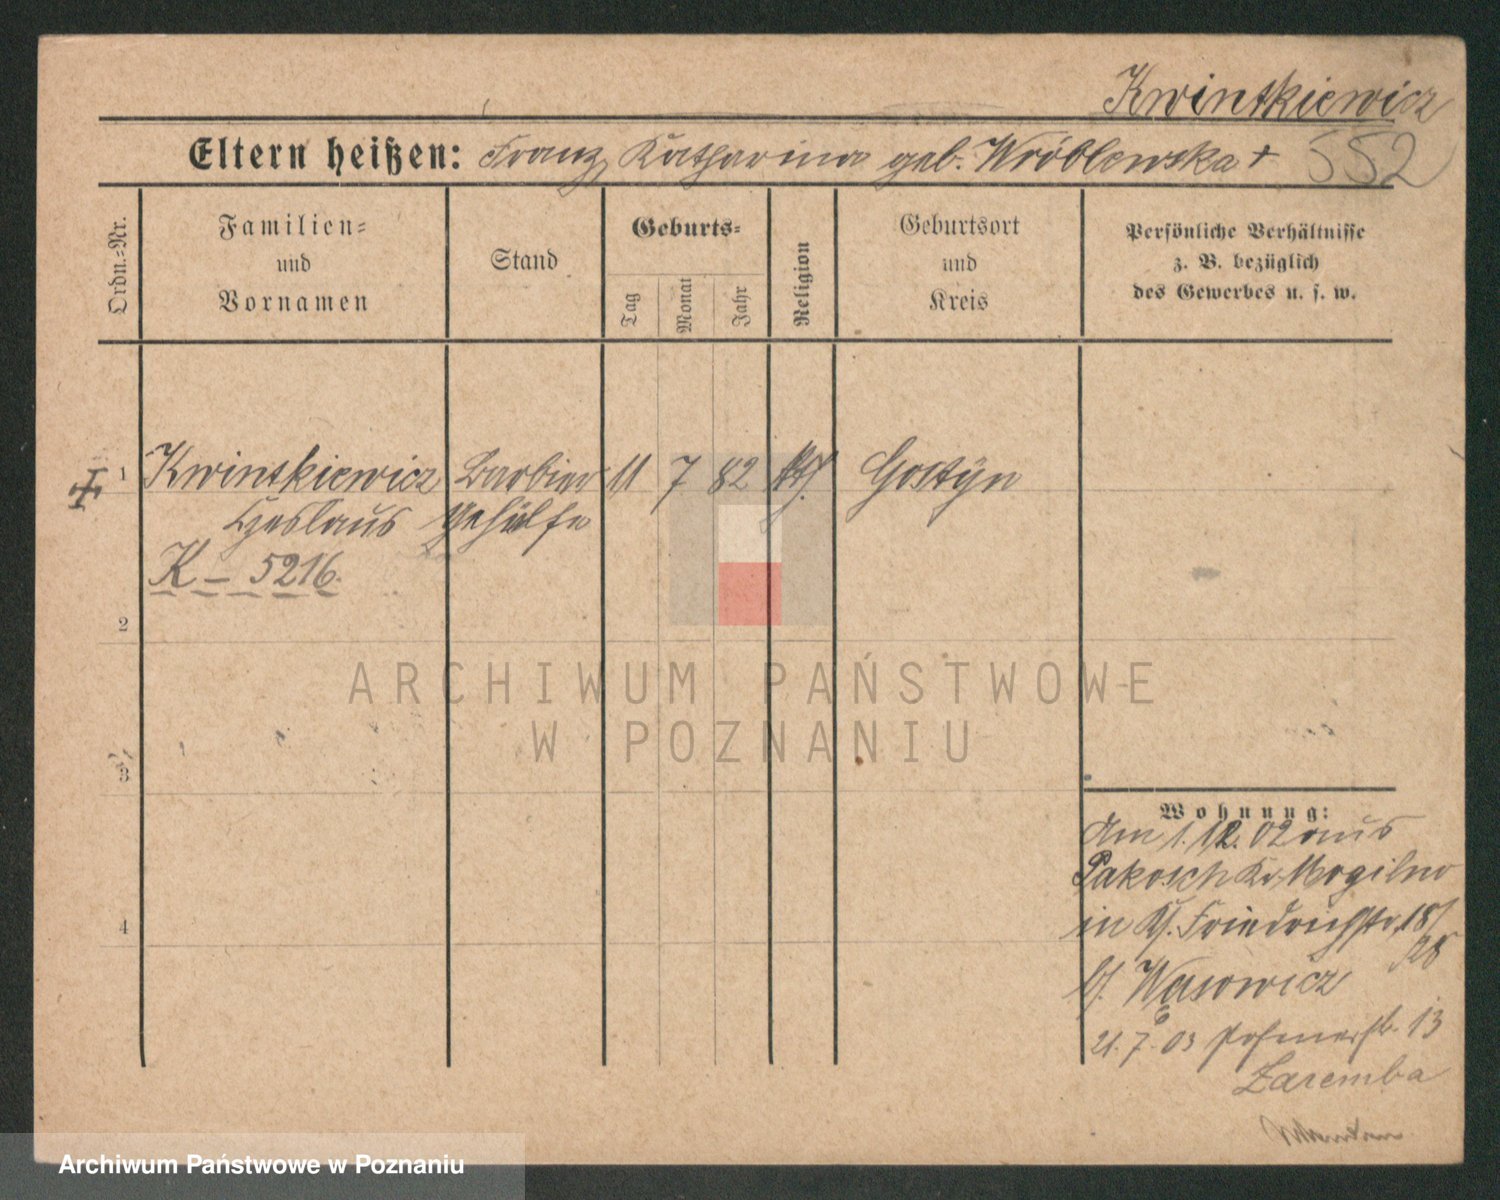 Kwintkiewicz
Eltern heißen: Franz, Katharina geb. Wróblewska + 552
Ordn.=Nr.
Familien=
und
Vornamen
Stand
Geburts=
Tag
Monat
Jahr
Religion
Geburtsort
und
Kreis
Persönliche Verhältnisse
z. B. bezüglich
des Gewerbes u. s. w.
1 Kwintkiewicz Barbier 11 7 82 kth. Gostyn
Czeslaus Gehülfe
K – 5216.
2
ARCHIWUM PAŃSTWOWE
W POZNANIU
3
Wohnung:
Am 1.12.02 aus
Pakosch Kr. Mogilno
in Friedrichstr. 18/
28
b/. Wąsowicz
4
21.7.03 Posenerstr. 13
Zaremba
Archiwum Państwowe w Poznaniu